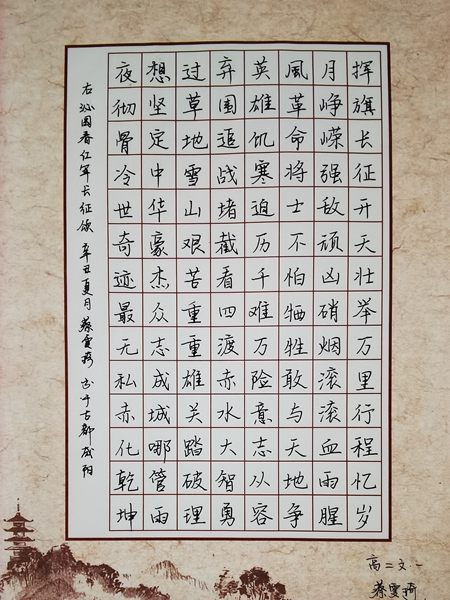 挥旗长征开天壮举万里行程忆岁
月峥嵘强敌顽凶硝烟滚滚血雨腥
風革命将士不怕牺牲敢与天地争
英雄饥寒迫历千难万险意志从容
弃围追战堵截看四渡赤水大智勇
过草地雪山艰苦重重雄关踏破理
想坚定中华豪杰众志成城哪管雨
夜彻骨冷世奇迹最无私赤化乾坤
右沁园春红军长征颂 辛丑夏月蔡雯琦 书于古都咸阳
高二文·一
蔡雯琦